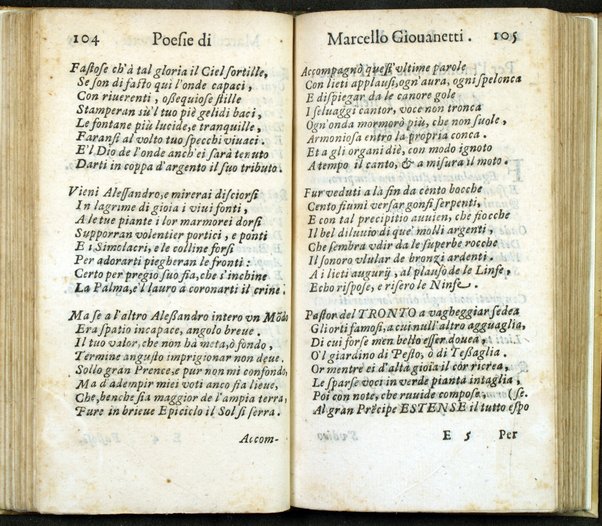 104 Poesie di
Fastose ch'à tal gloria il Ciel sortille,
Se son di fasto qui l'onde capaci,
Con riuerenti, ossequiose stille
Stamperan sù'l tuo piè gelidi baci,
Le fontane più lucide, e tranquille,
Faransi al volto tuo specchi viuaci.
E'l Dio de l'onde anch'ei sarà tenuto
Darti in coppa d'argento il suo tributo.
Vieni Alessandro, e mirerai disciorsi
In lagrime di gioia i viui fonti,
A le tue piante i lor marmorei dorsi
Supporran volentier portici, e ponti
E i Simolacri, e le colline forsi
Per adorarti piegheran le fronti:
Certo per pregio suo fia, che s'inchine
La Palma, e'l lauro a coronarti il crine.
Ma se a l'altro Aleßandro intero vn Mõdo
Era spatio incapace, angolo breue.
Il tuo valor, che non ha metà, ò fondo,
Termine angusto imprigionar non deue.
So llo gran Prence, e pur non mi confondo,
Ma d'adempir miei voti anco fia lieue,
Che, benche sia maggior de l'ampia terra,
Pure in brieue Epiciclo il Sol si serra.
Accom-
Marcello Giouanetti. 105
Accompagnò quest'vltime parole
Con lieti applausi, ogn'aura, ogni spelonca
E dispiegar da le canore gole
I seluaggi cantor, voce non tronca
Ogn'onda mormorò più, che non suole,
Armoniosa entro la propria conca.
Et a gli organi diè, con modo ignoto
A tempo il canto, & a misura il moto.
Fur veduti a la fin da cento bocche
Cento fiumi versar gonfi serpenti,
E con tal precipitio auuien, che fiocche
Il bel diluuio di que' molli argenti,
Che sembra vdir da le superbe rocche
Il sonoro vlular de bronzi ardenti.
A i lieti augurij, al plauso de le Linfe,
Echo rispose, e risero le Ninfe.
Pastor del TRONTO a vagheggiar sedea
Gli orti famosi, a cui null'altro agguaglia,
Di cui forse men bello esser douea,
O'l giardino di Pesto, ò di Teßaglia.
Or mentre ei d'alta gioia il cor ricrea,
Le sparse voci in verde pianta intaglia,
Poi con note, che ruuide compose, (se.
Al gran Prẽcipe ESTENSE il tutto espo
E 5 Per